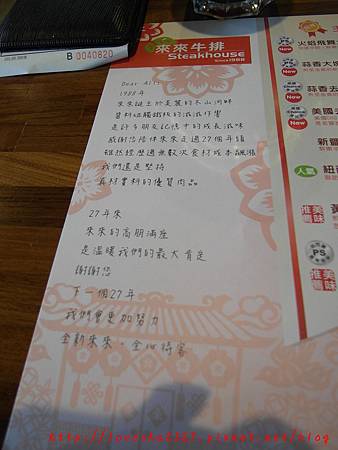 B 0040820
來來牛排
Steakhouse
Since1988
Dear All:
1988年
來來誕生於美麗的冬山河畔
醬料碰觸鐵板的滋滋作響
是許多朋友記憶中的成長滋味
感謝您陪伴來來走過27個年頭
雖然經歷過無數次食材成本飆漲
我們還是堅持
真材實料的優質肉品
27年來
來來的高朋滿座
是溫暖我們的最大肯定
謝謝您
下一個27年
我們會更加努力
全新來來，全心待客
火焰飛
New
蒜香大
New
蒜香去
New
美國
New
新
人氣
紐
推美薦味
PS
推美薦味